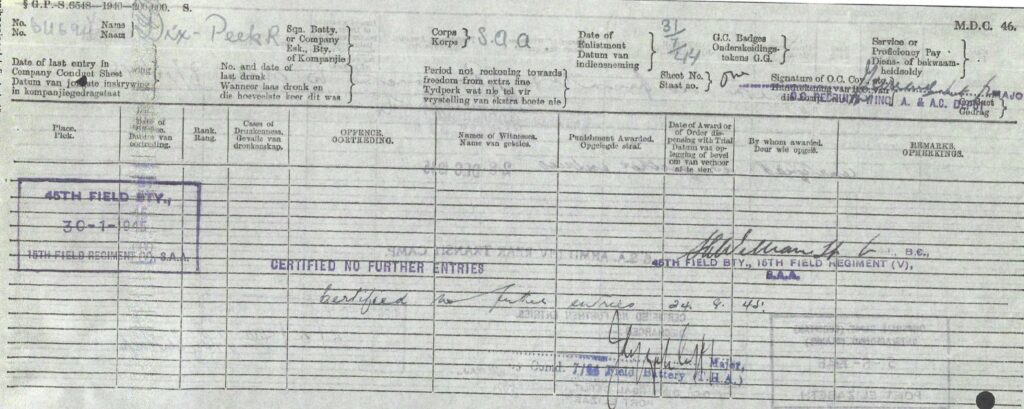 § G.P.-S.6548—1940—200,000. S.
M.D.C. 46.
No.
No.
Name
Naam
Dix-Peek R
Sqn. Batty.
or Company
Esk., Bty.
of Kompanjie
Corps
Korps
S.A.A.
Date of
Enlistment
Datum van
indiensneming
31/1/44
G.C. Badges
Onderskeidings-
tekens G.G.
Service or
Proficiency Pay
Diens- of bekwaam-
heidsoldy
Date of last entry in
Company Conduct Sheet
Datum van jongste inskrywing
in kompanjiegedragstaat
No. and date of
last drunk
Wanneer laas dronk en
die hoeveelste keer dit was
Period not reckoning towards
freedom from extra fine
Tydperk wat nie tel vir
vrystelling van ekstra boete nie
Sheet No.
Staat no.
one
Signature of O.C. Coy., etc.
MAJO
O.C. RECRUITS WING A. & A.C. DEPOT
Conduct
Gedrag
Place.
Plek.
Date of
Offence.
Datum van
oortreding.
Rank.
Rang.
Cases of
Drunkenness.
Gevalle van
dronkenskap.
OFFENCE.
OORTREDING.
Names of Witnesses.
Name van getuies.
Punishment Awarded.
Opgelegde straf.
Date of Award or
of Order dis-
pensing with Trial
Datum van op-
legging of bevel
om van verhoor
af te sien.
By whom awarded.
Deur wie opgelê.
REMARKS.
OPMERKINGS.
45TH FIELD BTY.,
30-1-1945
15TH FIELD REGIMENT (V), S.A.A.
CERTIFIED NO FURTHER ENTRIES
B.C.,
45TH FIELD BTY., 15TH FIELD REGIMENT (V),
S.A.A.
Certified no further entries 24. 9. 45.
Major,
Comd. 7/ Field Battery (T.H.A.)